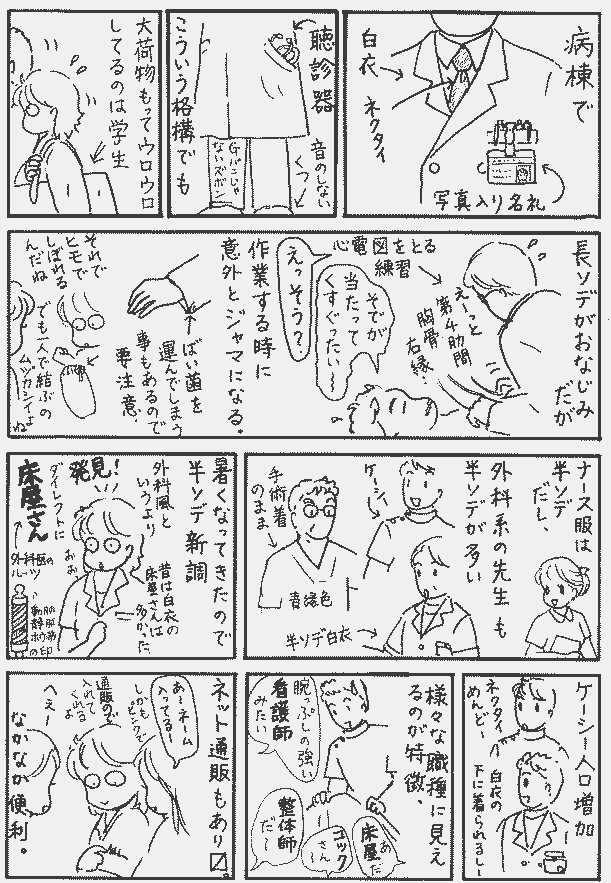 病棟で
白衣
ネクタイ
写真入り名札
聴診器
音のしない
くつ
Gパンじゃ
ないズボン
こういう格構でも
大荷物もってウロウロ
してるのは学生
長ソデがおなじみ
だが
心電図をとる
練習
えーっと
第4肋間
胸骨
右縁…
そでが
当たって
くすぐったい〜
えっそう?
作業する時に
意外とジャマになる。
ばい菌を
運んでしまう
事もあるので
要注意。
それで
ヒモで
しばれる
んだね
でも一人で結ぶの
ムツカシイよね
ナース服は
半ソデ
だし、
外科系の先生も
半ソデが多い
ケーシー
手術着
のまま
青緑色
半ソデ白衣
暑くなってきたので
半ソデ新調
外科風と
いうより
昔は白衣の
床屋さんは
多かった
発見!
ダイレクトに
床屋さん
おお
外科医の
ルーツ
動脈
静脈
包帯
の印
ケーシー人口増加
ネクタイ
めんど〜
白衣の
下に着られるし〜
様々な職種に見え
るのが特徴、
腕っぷしの強い
看護師
みたい
整体師
だ〜
コック
さん〜
あ
床屋だ
ネット通販もあり〼。
あ〜ネーム
入ってる〜
しかも
ピンクで
通販ので
入れて
くれるよ
へぇー
なかなか便利。